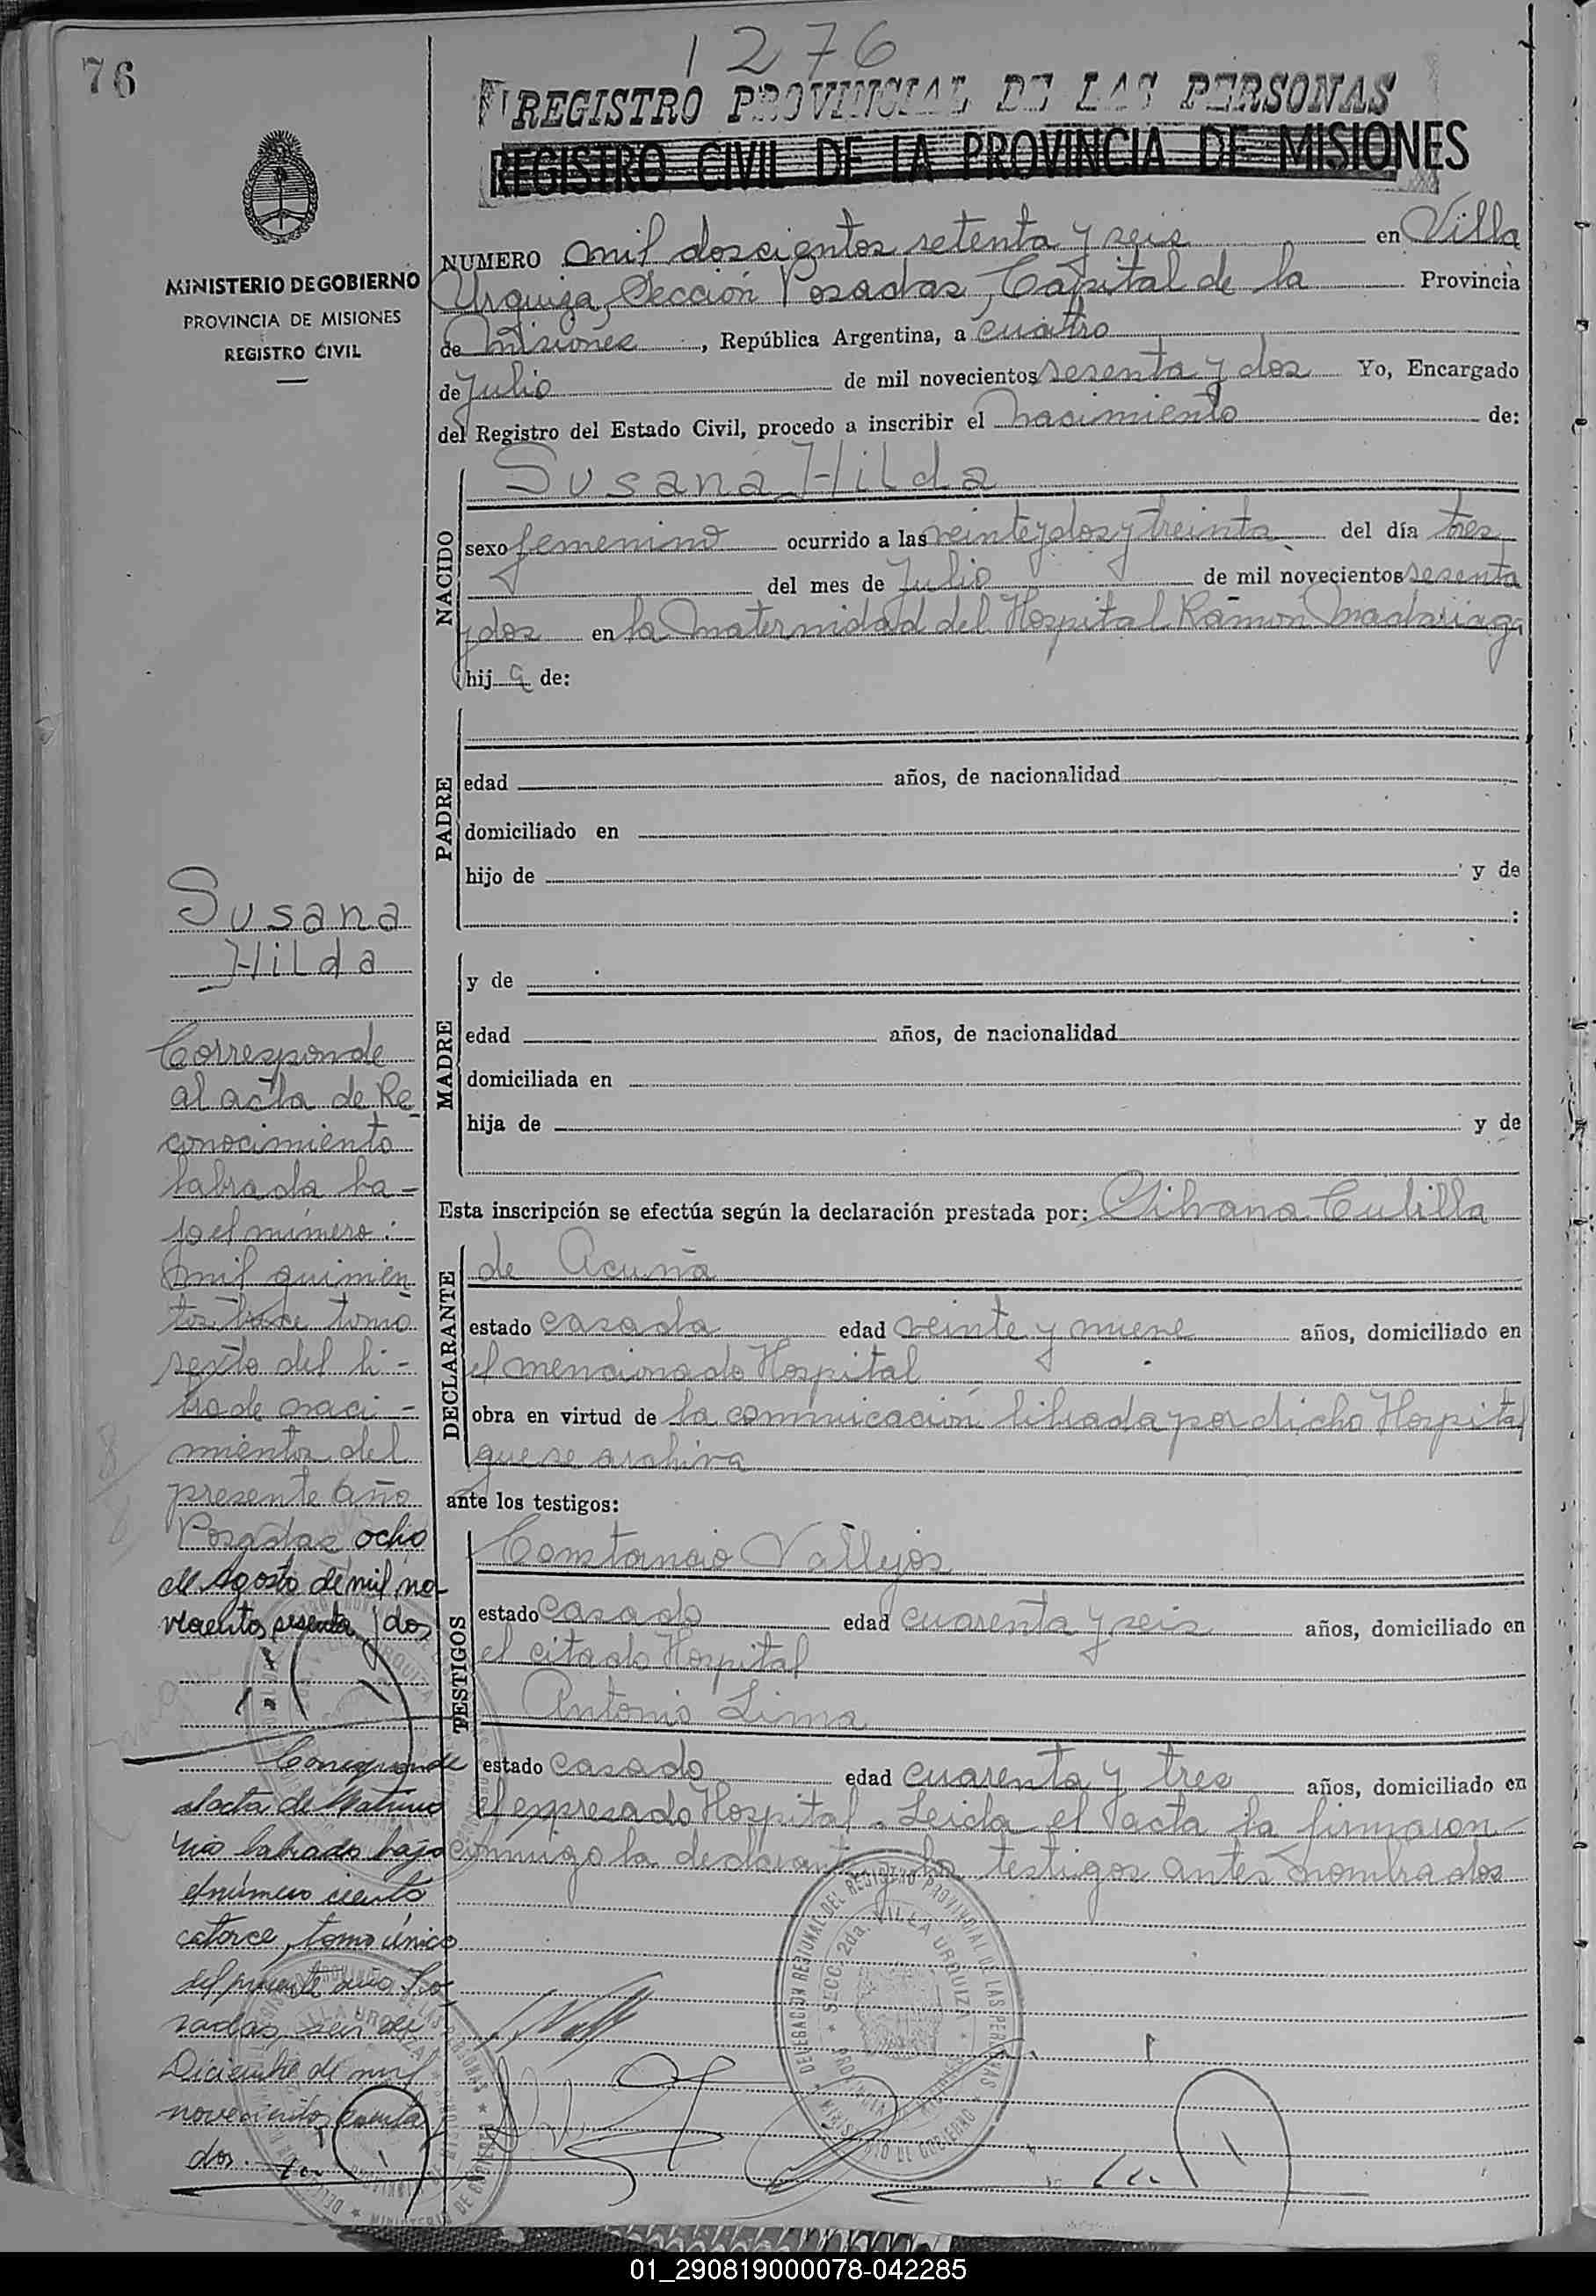 76
1276
REGISTRO PROVINCIAL DE LAS PERSONAS
REGISTRO CIVIL DE LA PROVINCIA DE MISIONES
MINISTERIO DE GOBIERNO
PROVINCIA DE MISIONES
REGISTRO CIVIL
NUMERO mil doscientos setenta y seis en Villa
Urquiza, Sección Posadas, Capital de la Provincia
de Misiones, República Argentina, a cuatro
de Julio de mil novecientos sesenta y dos Yo, Encargado
del Registro del Estado Civil, procedo a inscribir el nacimiento de:
NACIDO
Susana Hilda
sexo femenino ocurrido a las veinte y dos y treinta del día tres
del mes de Julio de mil novecientos sesenta
y dos en la Maternidad del Hospital Ramón Madariaga
hija de:
PADRE
edad años, de nacionalidad
domiciliado en
hijo de y de
:
MADRE
y de
edad años, de nacionalidad
domiciliada en
hija de y de
Esta inscripción se efectúa según la declaración prestada por: Silvana
DECLARANTE
de Acuña
estado casada edad veinte y nueve años, domiciliado en
el mencionado Hospital
obra en virtud de la comunicación librada por dicho Hospital
que se archiva
ante los testigos:
TESTIGOS
Constancio Vallejos
estado casado edad cuarenta y seis años, domiciliado en
el citado Hospital
Antonio Lima
estado casado edad cuarenta y tres años, domiciliado en
el expresado Hospital. Leida el acta la firmaron
conmigo la declarante y los testigos antes nombrados
Susana
Hilda
Corresponde
al acta de Re
conocimiento
labrada ba-
jo el número:
mil quinien
tos trece tomo
sexto del li-
bro de naci-
mientos del
presente año
Posadas ocho
de Agosto de mil no-
vecientos sesenta y dos
8/8
Corresponde
al acta de Matrimo
nio labrada bajo
el número ciento
catorce, tomo único
del presente año Po
sadas, seis de
Diciembre de mil
novecientos sesenta
dos.
DELEGACION REGIONAL DEL REGISTRO PROVINCIAL DE LAS PERSONAS
SECC. 2da. VILLA URQUIZA
MINISTERIO DE GOBIERNO
01_290819000078-042285